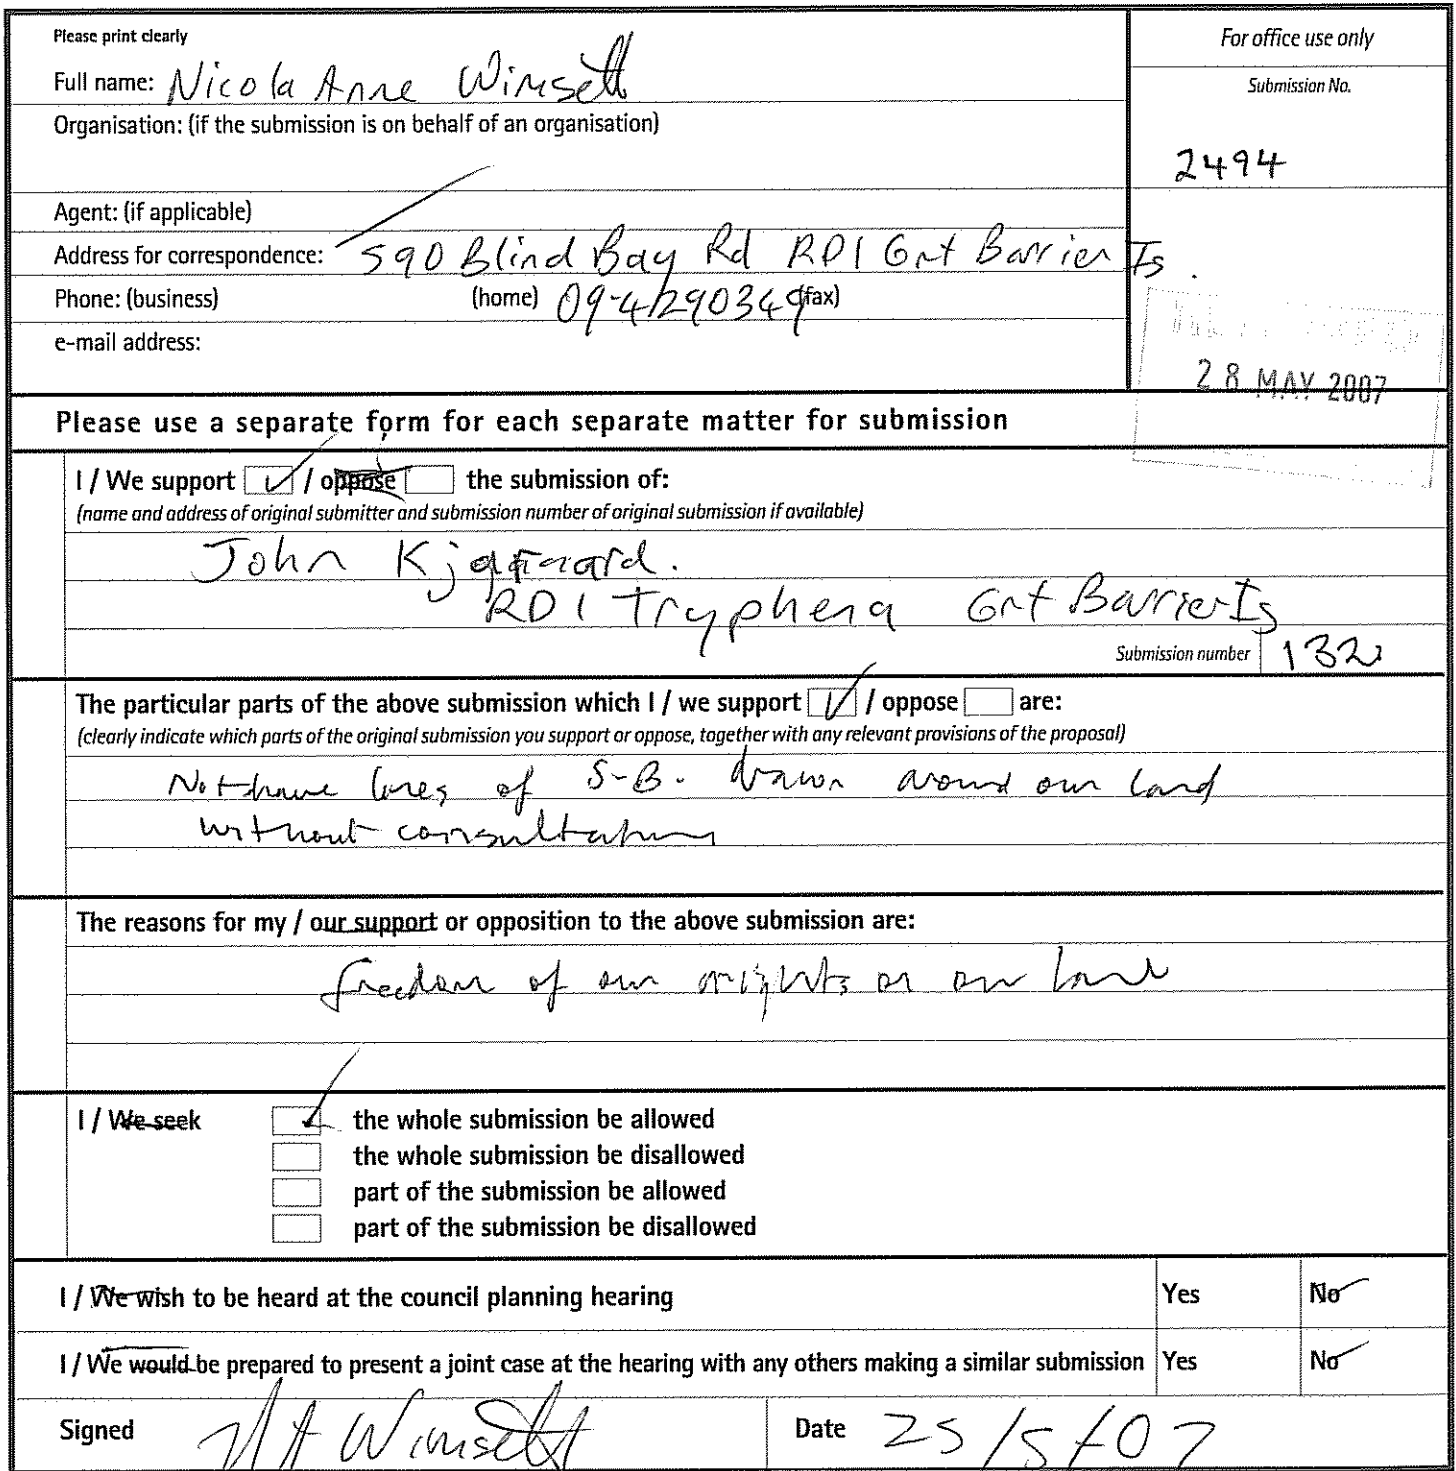 Please print clearly
Full name: Nicola Anne Wimsett
Organisation: (if the submission is on behalf of an organisation)
Agent: (if applicable)
Address for correspondence: 590 Blind Bay Rd RD1 Grt Barrier Is.
Phone: (business) (home) 09-4290349 (fax)
e-mail address:
For office use only
Submission No.
2494
28 MAY 2007
Please use a separate form for each separate matter for submission
I / We support ✓ / oppose the submission of:
(name and address of original submitter and submission number of original submission if available)
John
RD1 Tryphena Grt Barrier Is
Submission number 132
The particular parts of the above submission which I / we support ✓ / oppose are:
(clearly indicate which parts of the original submission you support or oppose, together with any relevant provisions of the proposal)
Not have lines of S-B. drawn around our land
without consultation
The reasons for my / our support or opposition to the above submission are:
freedom of our rights on our land
I / We seek ✓ the whole submission be allowed
the whole submission be disallowed
part of the submission be allowed
part of the submission be disallowed
I / We wish to be heard at the council planning hearing Yes No ✓
I / We would be prepared to present a joint case at the hearing with any others making a similar submission Yes No ✓
Signed NA Wimsett Date 25/5/07